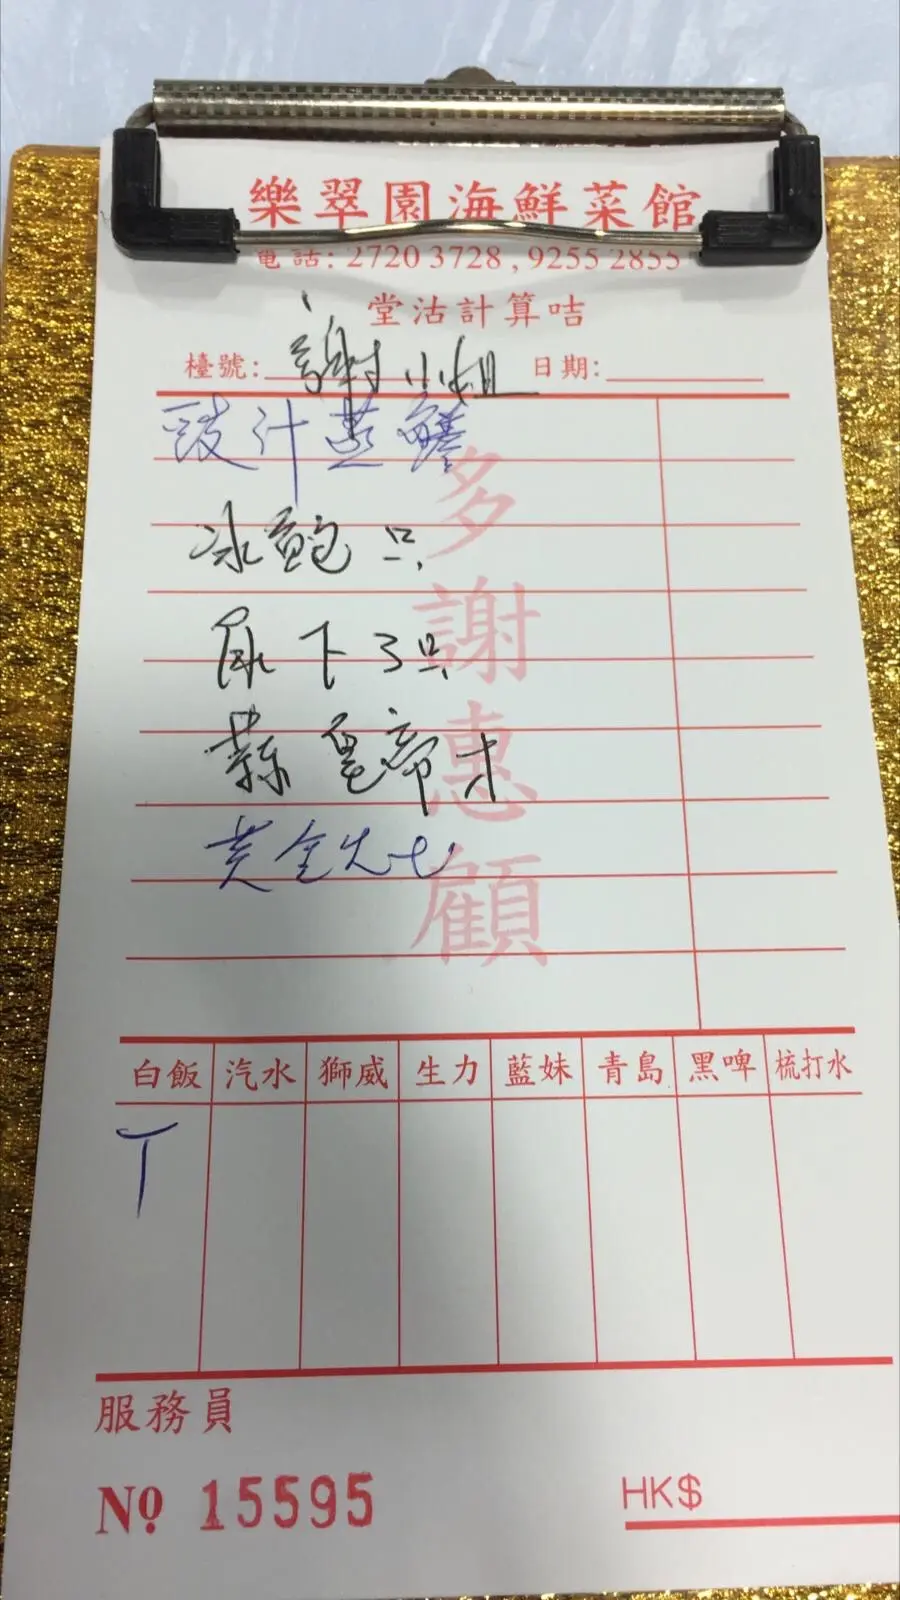 樂翠園海鮮菜館
電話: 2720 3728 , 9255 2855
堂沽計算咭
檯號: 謝小姐 日期:
豉汁蒸鱔
冰鮑 只
尿下3只
蒜 皇帝
黃金
多謝惠顧
白飯 汽水 獅威 生力 藍妹 青島 黑啤 梳打水
服務員
Nº 15595
HK$